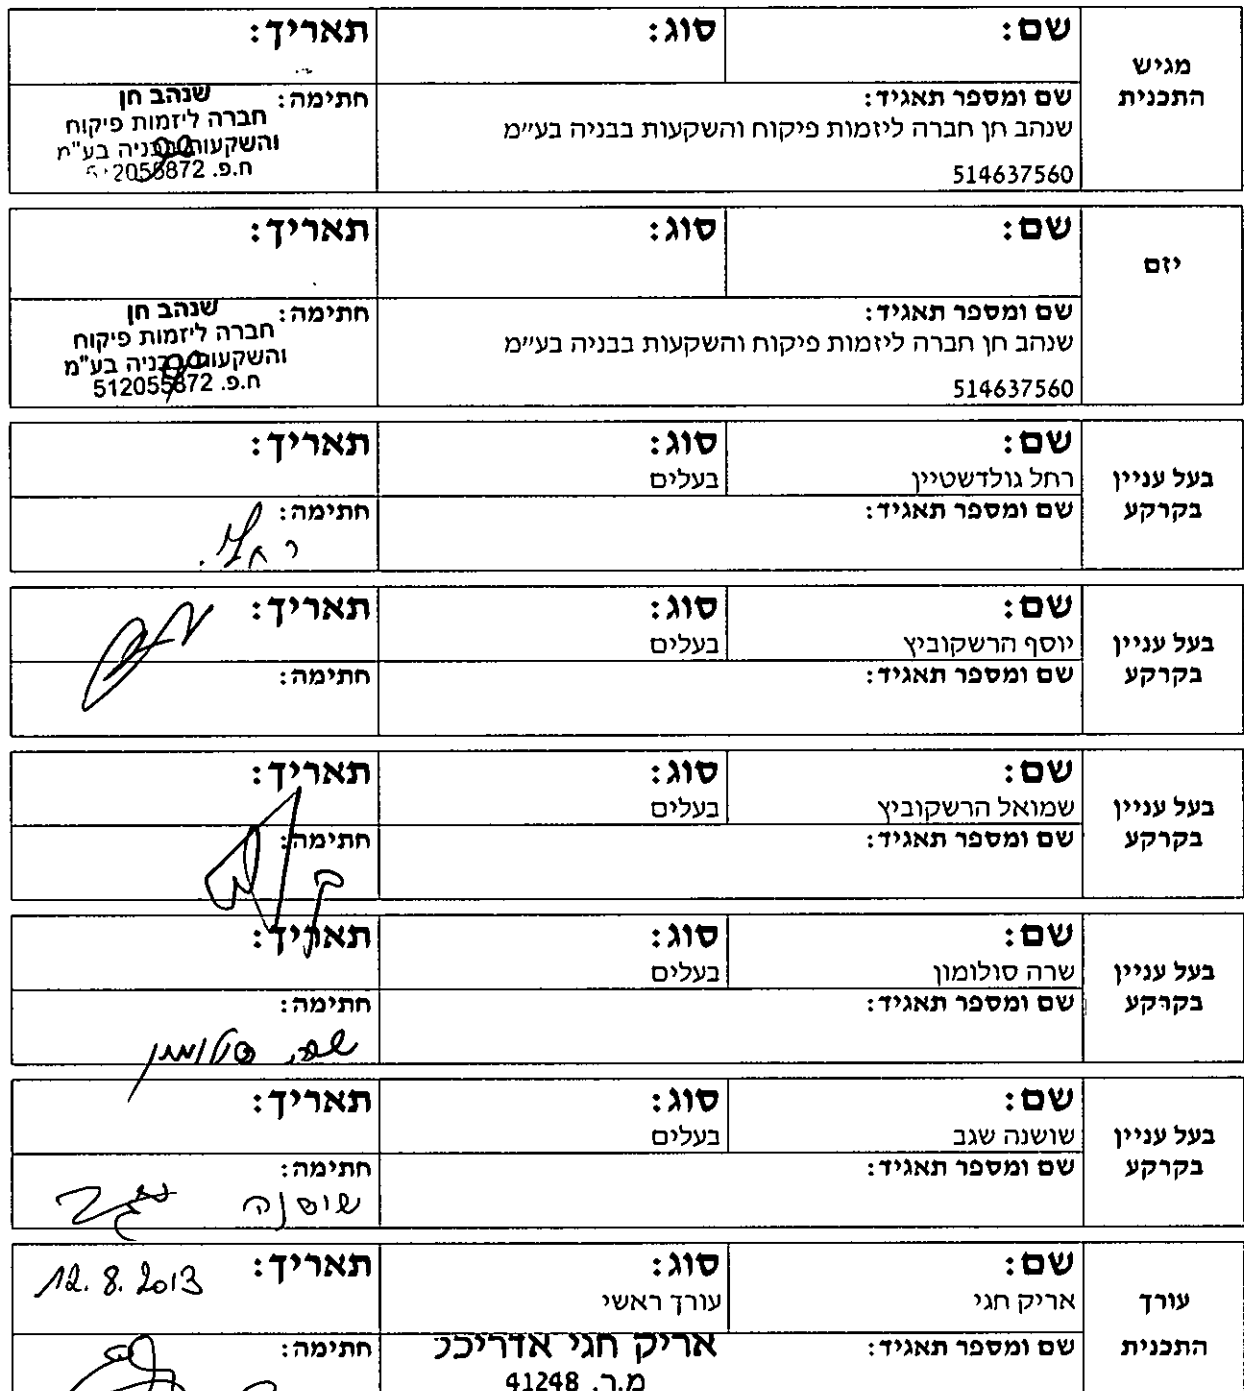 מגיש
התכנית
שם:
סוג:
תאריך:
שם ומספר תאגיד:
שנהב חן חברה ליזמות פיקוח והשקעות בבניה בע״מ
514637560
חתימה:
שנהב חן
חברה ליזמות פיקוח
והשקעות בבניה בע"מ
ח.פ. 512055872
יזם
שם:
סוג:
תאריך:
שם ומספר תאגיד:
שנהב חן חברה ליזמות פיקוח והשקעות בבניה בע״מ
514637560
חתימה:
שנהב חן
חברה ליזמות פיקוח
והשקעות בבניה בע"מ
ח.פ. 512055872
בעל עניין
בקרקע
שם:
רחל גולדשטיין
סוג:
בעלים
תאריך:
שם ומספר תאגיד:
חתימה:
רחל
בעל עניין
בקרקע
שם:
יוסף הרשקוביץ
סוג:
בעלים
תאריך:
שם ומספר תאגיד:
חתימה:
בעל עניין
בקרקע
שם:
שמואל הרשקוביץ
סוג:
בעלים
תאריך:
שם ומספר תאגיד:
חתימה:
בעל עניין
בקרקע
שם:
שרה סולומון
סוג:
בעלים
תאריך:
שם ומספר תאגיד:
חתימה:
שרה סולומון
בעל עניין
בקרקע
שם:
שושנה שגב
סוג:
בעלים
תאריך:
שם ומספר תאגיד:
חתימה:
שושנה שגב
עורך
התכנית
שם:
אריק חגי
סוג:
עורך ראשי
תאריך: 12.8.2013
שם ומספר תאגיד:
אריק חגי אדריכל
מ.ר. 41248
חתימה: